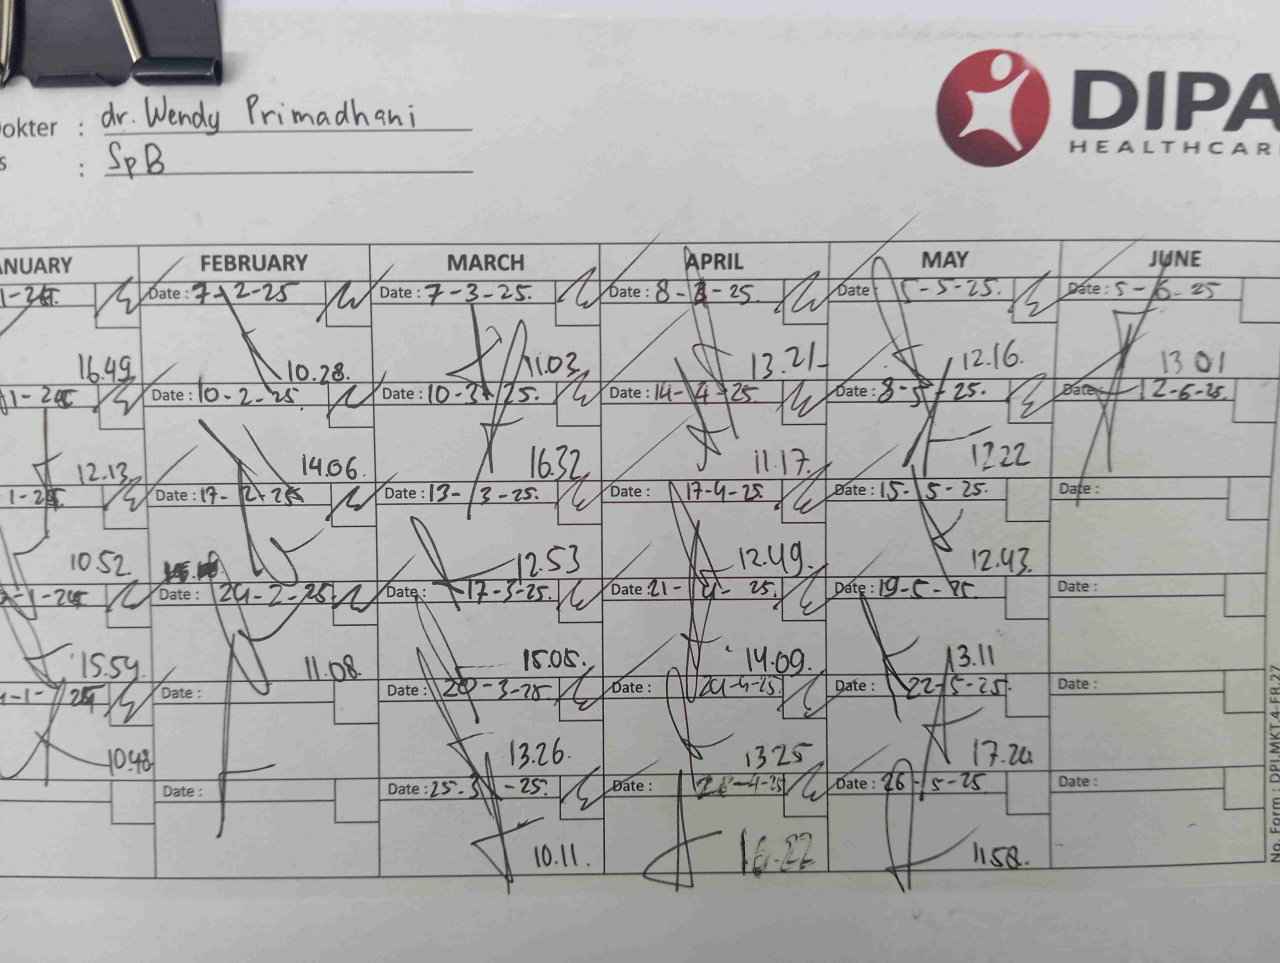 okter : dr. Wendy Primadhani
s : SpB
DIPA
HEALTHCAR
ANUARY FEBRUARY MARCH APRIL MAY JUNE
Date : 7-2-25 Date : 7-3-25. Date : 8-4-25. Date : 5-5-25. Date : 5-6-25
16.49 10.28. 11.03 13.21 12.16. 13 01
Date : 10-2-25. Date : 10-3-25. Date : 14-4-25. Date : 8-5-25. Date : 12-6-25.
12.13 14.06. 16.32 11.17. 12.22
Date : 17-2-25 Date : 13-3-25. Date : 17-4-25. Date : 15-5-25. Date :
10.52. 12.53 12.49. 12.43.
Date : 24-2-25 Date : 17-3-25. Date : 21-4-25. Date : 19-5-25. Date :
15.54. 11.08. 15.05. 14.09. 13.11
Date : Date : 20-3-25. Date : 24-4-25. Date : 22-5-25. Date :
10.48 13.26. 13.25 17.20.
Date : Date : 25-3-25. Date : Date : 26-5-25 Date :
10.11. 16.22 11.58.
No. Form : DPI.MKT.4-FR.27